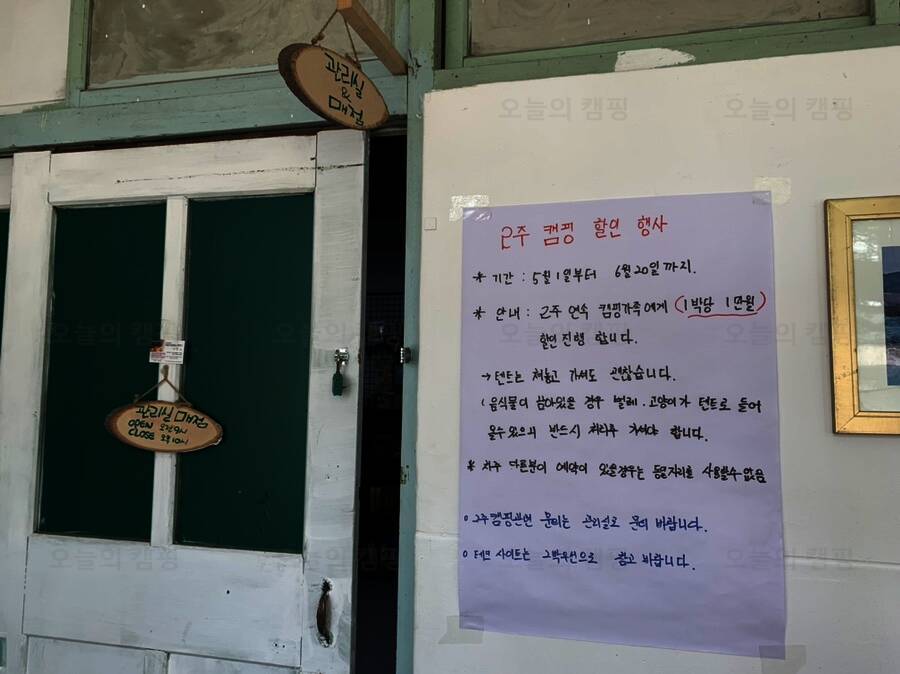 관리실
&
매점
오늘의 캠핑
오늘의 캠핑
2주 캠핑 할인 행사
* 기간 : 5월 1일부터 6월 20일 까지.
* 안내 : 2주 연속 캠핑가족에게 (1박당 1만원)
할인 진행 합니다.
→ 텐트는 쳐놓고 가셔도 괜찮습니다.
( 음식물이 남아있을 경우 벌레. 고양이가 텐트로 들어
올수 있으니 반드시 치워주 가셔야 합니다.
* 차주 다른분이 예약이 있을경우는 동일자리를 사용할수 없음
o 2주 캠핑관련 문의는 관리실로 문의 바랍니다.
o 데크 사이트는 2박우선으로 참고 바랍니다.
관리실 매점
OPEN 오전 9시
CLOSE 오후 10시
오늘의 캠핑
오늘의 캠핑
오늘의 캠핑
오늘의 캠핑
오늘의 캠핑
오늘의 캠핑
오늘의 캠핑
오늘의 캠핑